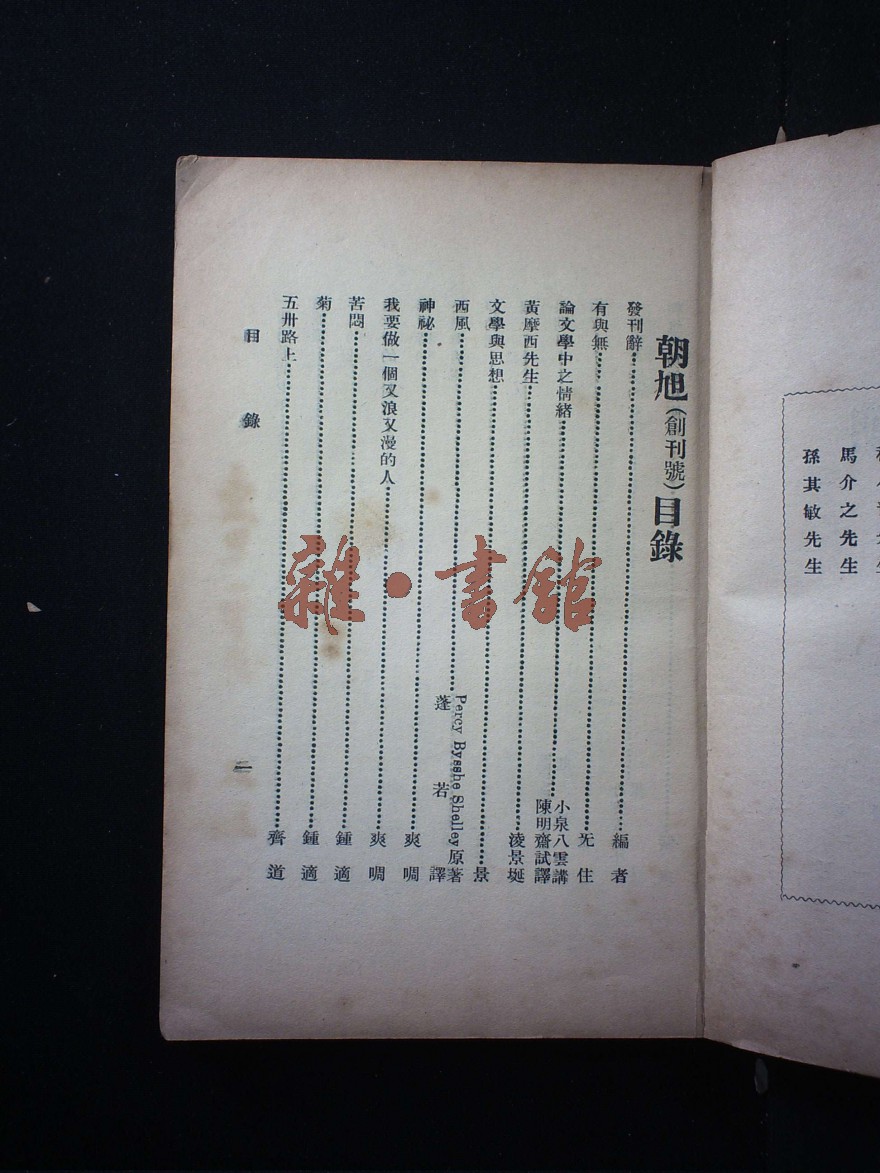 孫其敏先生
馬介之先生
朝旭（創刊號）目錄
發刊辭 編者
有與無 旡住
論文學中之情緒 小泉八雲講 陳明齋試譯
黃摩西先生 淩景埏
文學與思想 景
西風 Percy Bysshe Shelley原著 蓬若譯
神祕 爽啁
我要做一個又浪又漫的人 爽啁
苦悶 鍾適
菊 鍾適
五卅路上 齊道
目錄
雜·書館